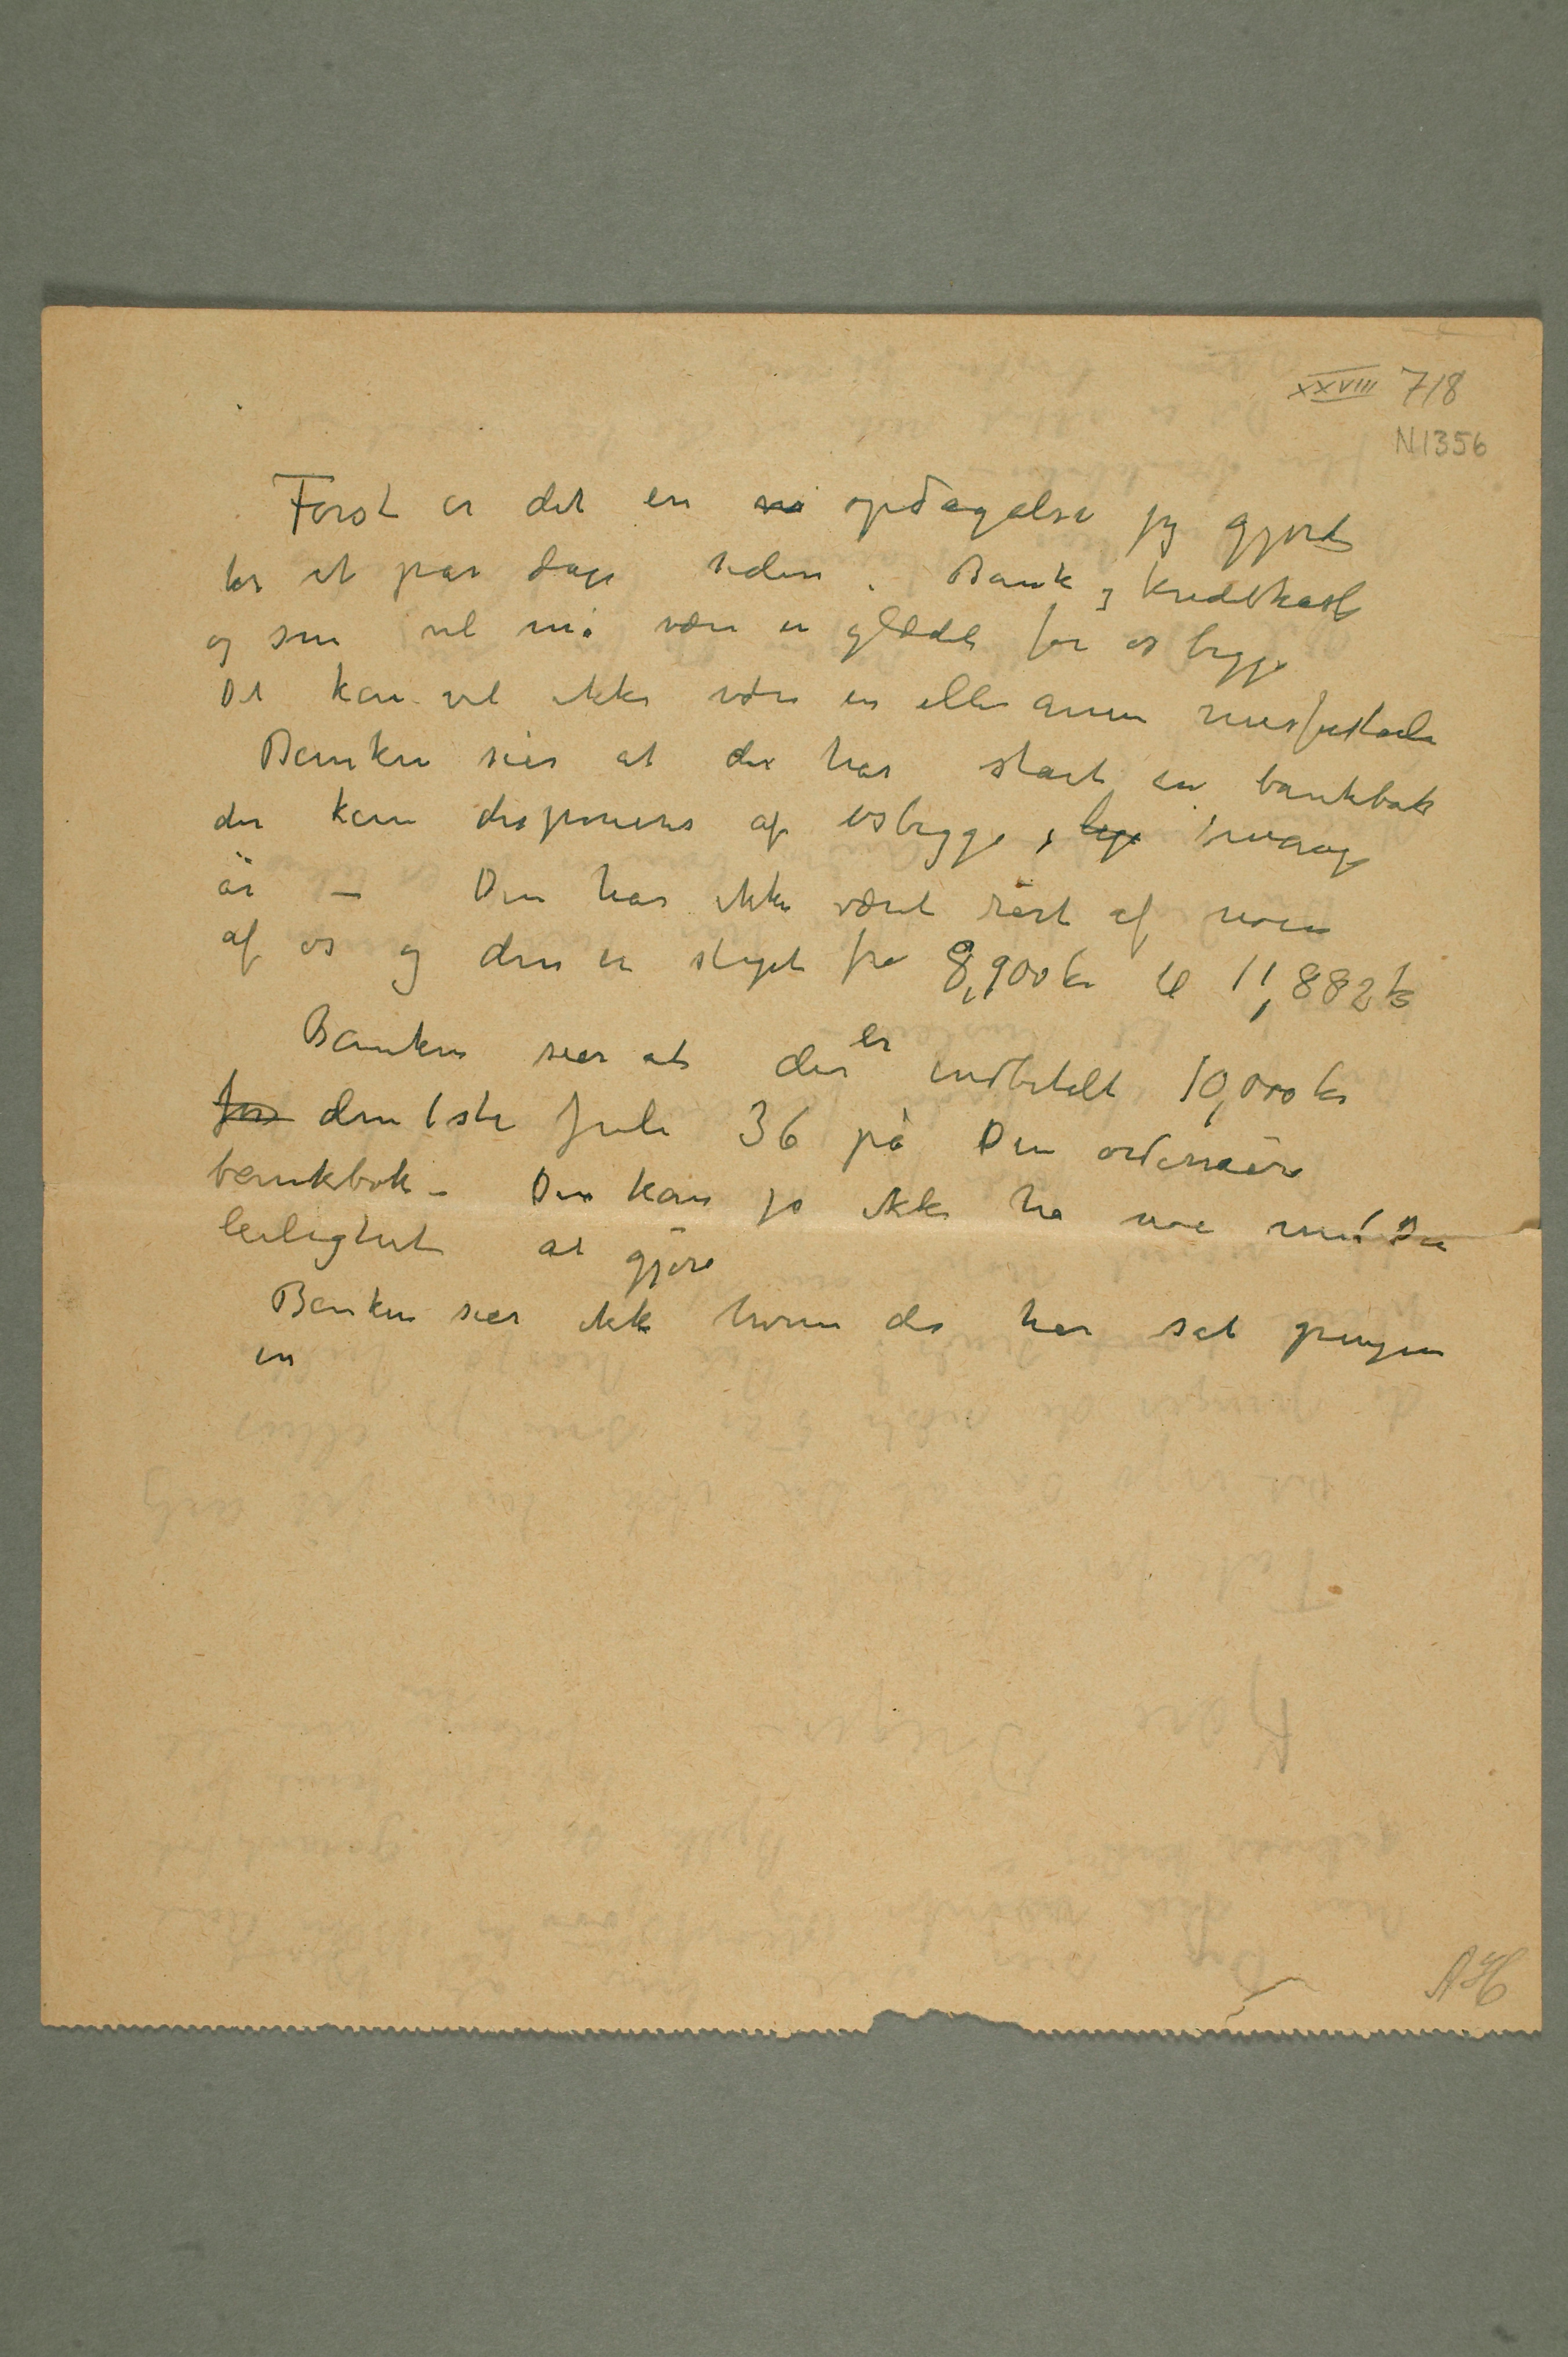 XXVIII 718
N 1356
Først er det en opdagelse jeg gjorde
for et par dage siden. Bank og kreditkasse
og som vel må være en glæde for os begge
Det kan vel ikke være en eller annen misforståelse
Banken sier at der har stået en bankbok
der kan disponeres af os begge, i mange
år – Den har ikke været rørt af noen
af os og den er steget fra 8,900 kr til 11,882 kr
Banken sier at der er indbetalt 10,000 kr
den 1ste Juli 36 på Din ordinære
bankbok – Den kan jo ikke ha noe med Din
leilighet at gjøre
Banken sier ikke hvem der har sat pengene
in
AH